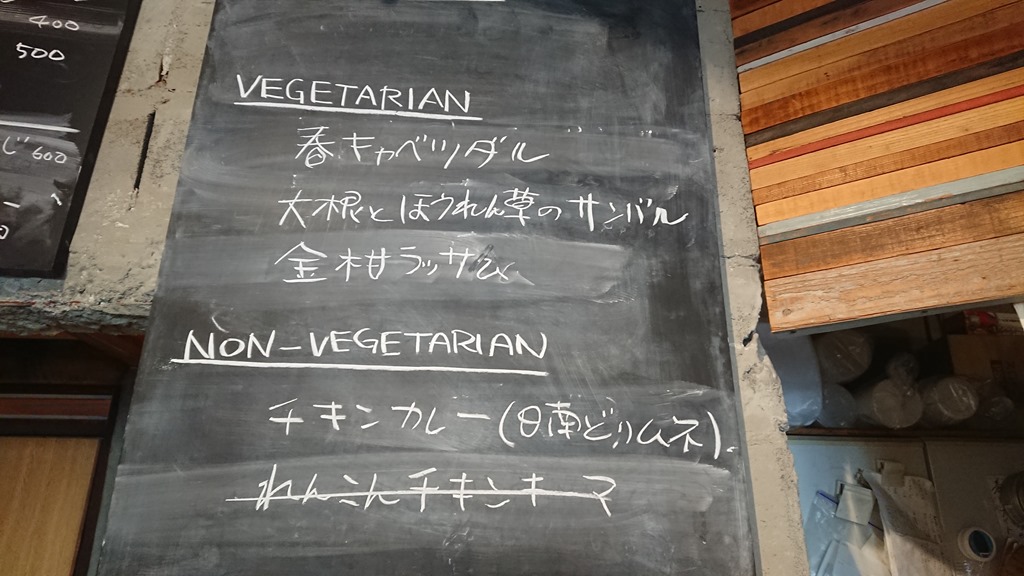 400
500
じ600
VEGETARIAN
春キャベツダル
大根とほうれん草のサンバル
金柑ラッサム
NON-VEGETARIAN
チキンカレー(日南どりムネ).
れんこんチキンキーマ